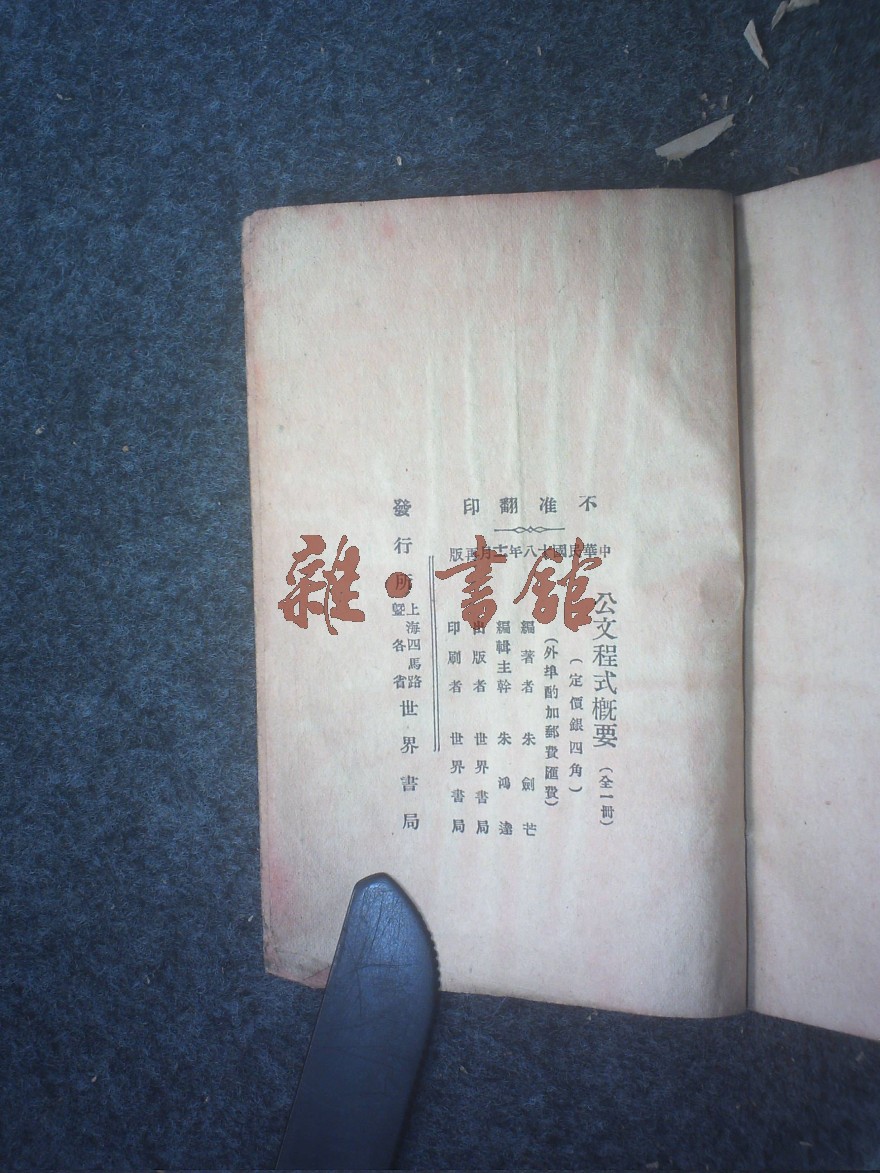 不准翻印
中華民國十八年十二月再版
公文程式概要（全一冊）
（定價銀四角）
（外埠酌加郵費匯費）
編著者 朱劍芒
編輯主幹 朱鴻達
出版者 世界書局
印刷者 世界書局
發行所 上海四馬路暨各省 世界書局
雜·書館